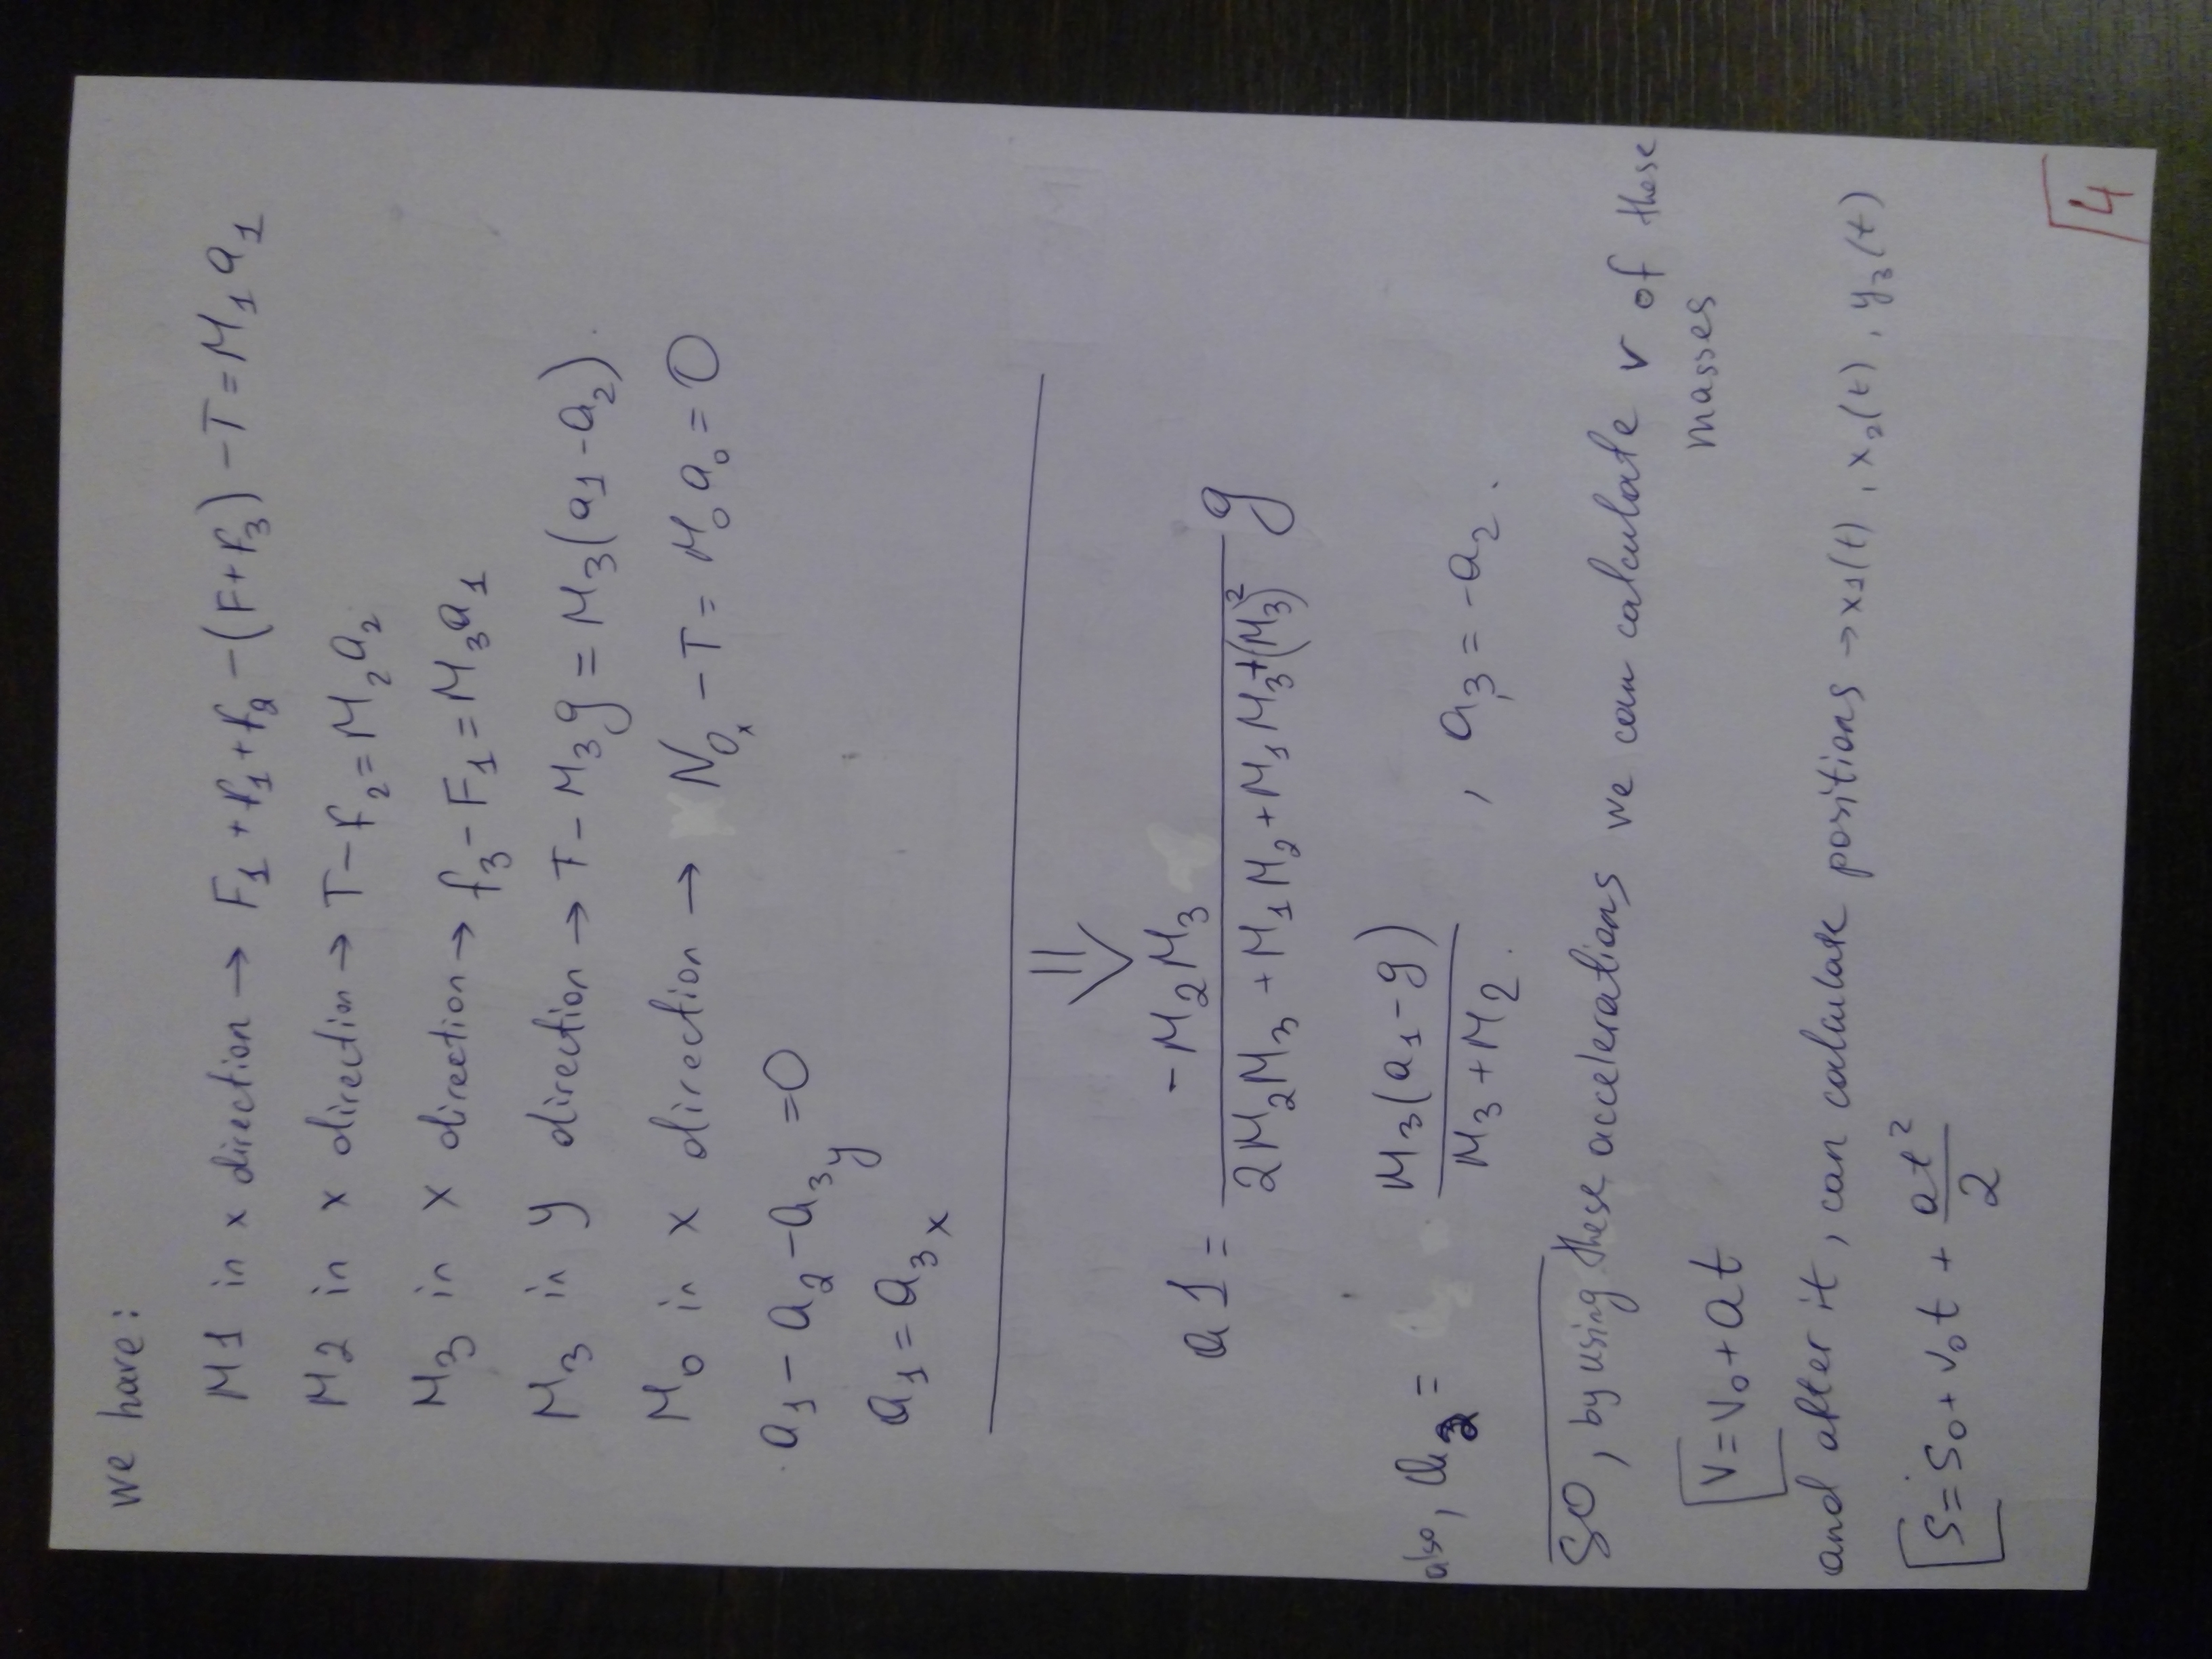 we have:
M1 in x direction → F₁ + f₁ + f₂ - (F + f₃) - T = M₁ a₁
M2 in x direction → T - f₂ = M₂ a₂
M₃ in x direction → f₃ - F₁ = M₃ a₁
M₃ in y direction → T - M₃ g = M₃ (a₁ - a₂).
M₀ in x direction → N₀ₓ - T = M₀ a₀ = 0
a₁ - a₂ - a₃y = 0
a₁ = a₃ₓ
⇓
a1 = -M₂M₃ / (2M₂M₃ + M₁M₂ + M₁M₃ + (M₃)²) g
also, a₂ = M₃(a₁ - g) / (M₃ + M₂) . , a₃ = -a₂ .
SO, by using these accelerations we can calculate v of these
masses
V = V₀ + at
and after it, can calculate positions → x1(t), x₂(t), y₃(t)
S = S₀ + V₀t + at²/2
4